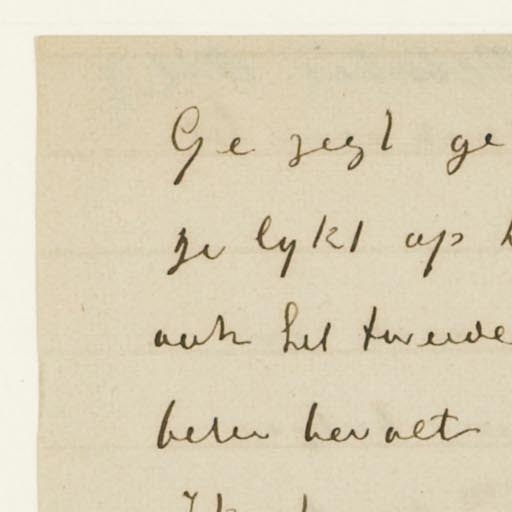 Ge zegt ge
ze lykt op
ook het tweede
beter bevalt